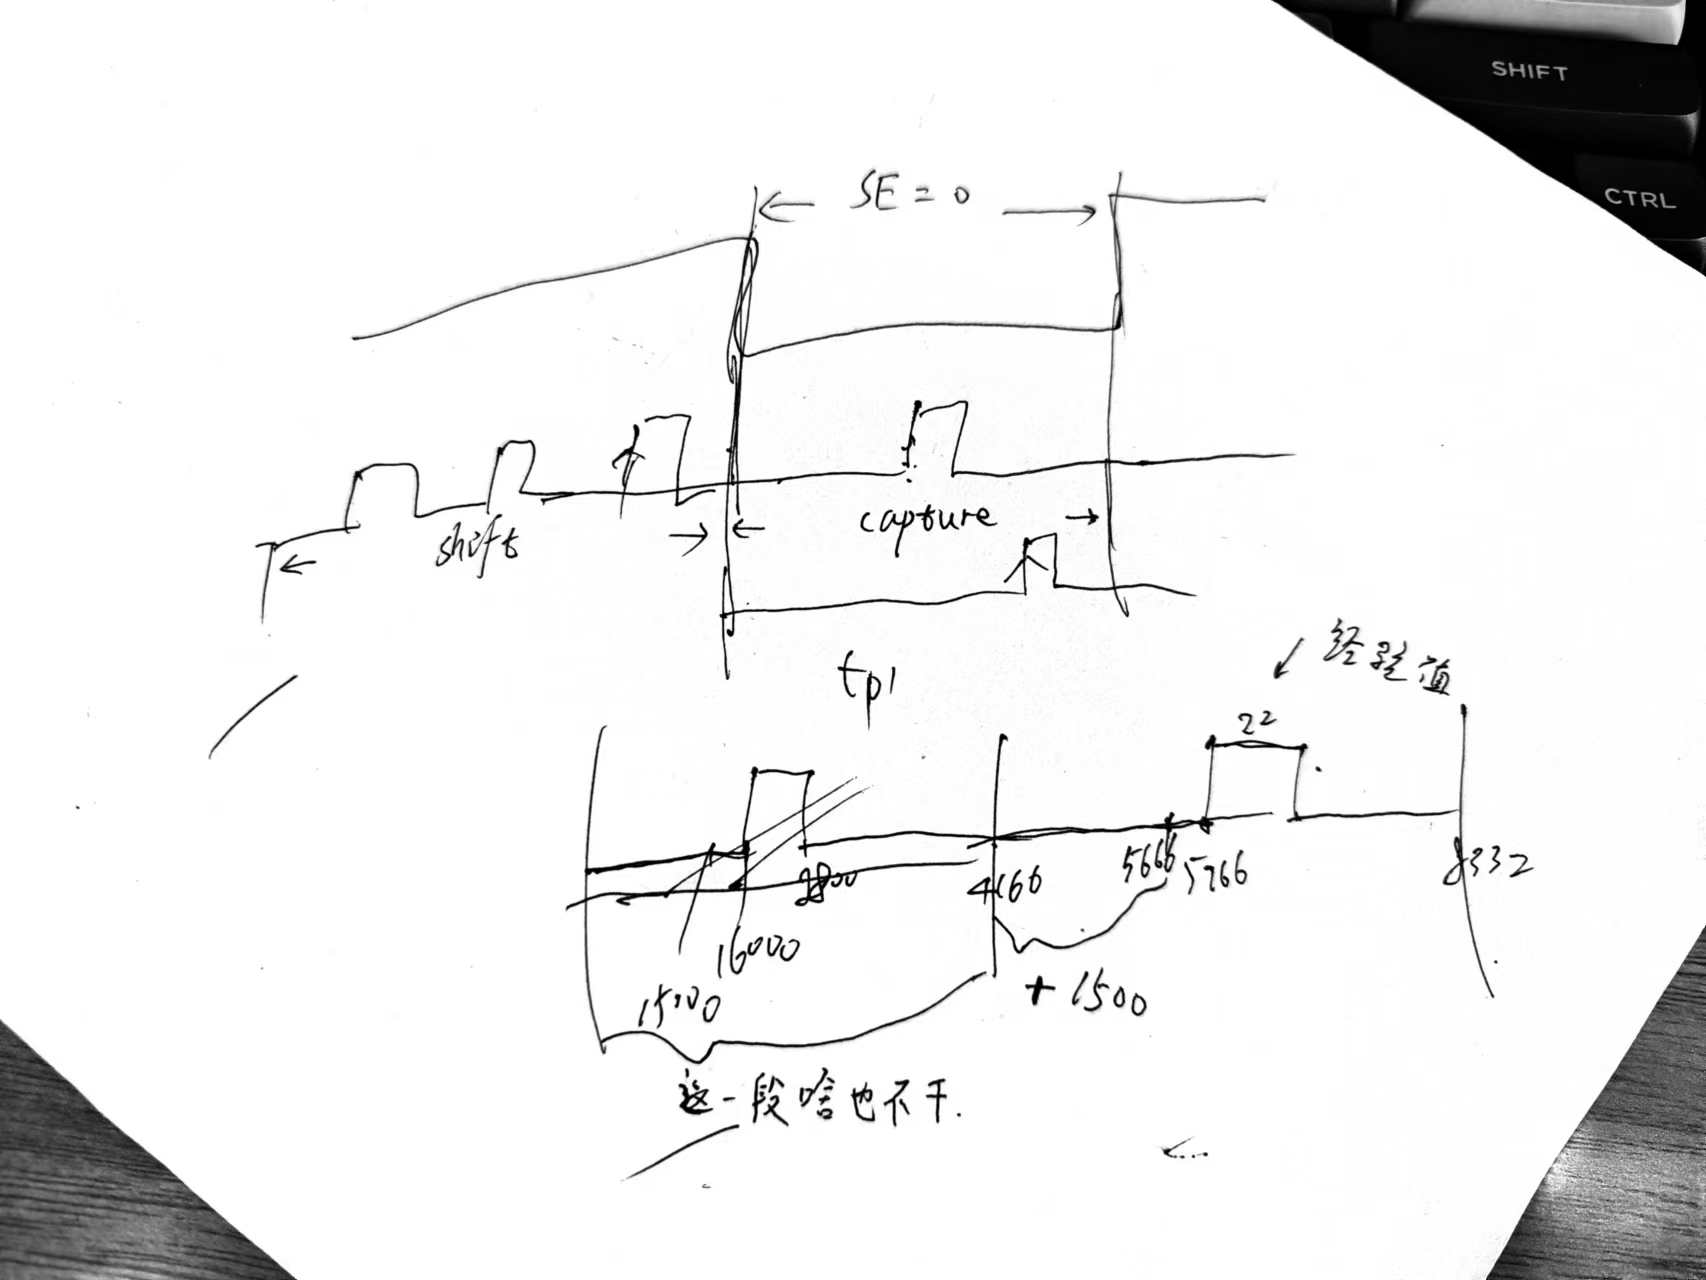 SHIFT
CTRL
← SE = 0 →
← shift →
← capture →
tp1
↙ 经验值
22
2800
4166
5666
5766
8332
16000
1500
+ 1500
这一段啥也不干.